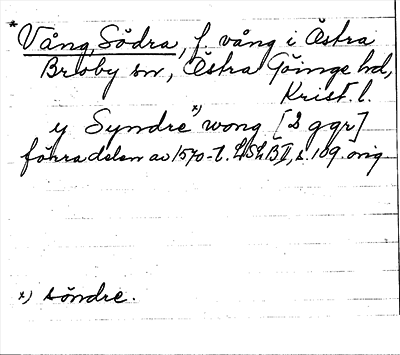 * Vång, Södra, f. vång i Östra
Broby sn, Östra Göinge hd,
Krist. l.
y Syndre x) wong [2 ggr]
förra delen av 1570-t. LiSkB II, s. 109 orig.
x) söndre.